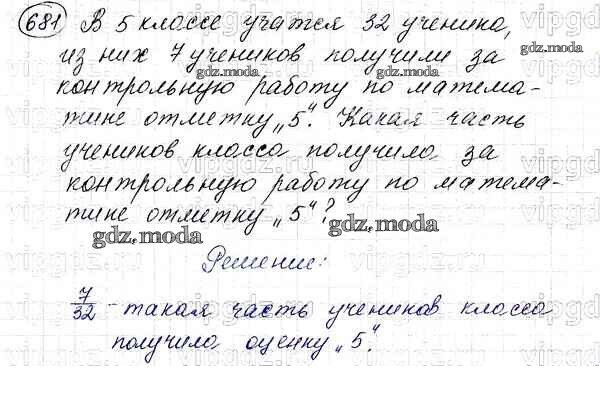 681 В 5 классе учатся 32 ученика,
из них 7 учеников получили за
контрольную работу по матема-
тике отметку „5“. Какая часть
учеников класса получила за
контрольную работу по матема-
тике отметку „5“?
Решение:
7/32 - такая часть учеников класса
получила оценку „5“.
gdz.moda
gdz.moda
gdz.moda
gdz.moda
gdz.moda